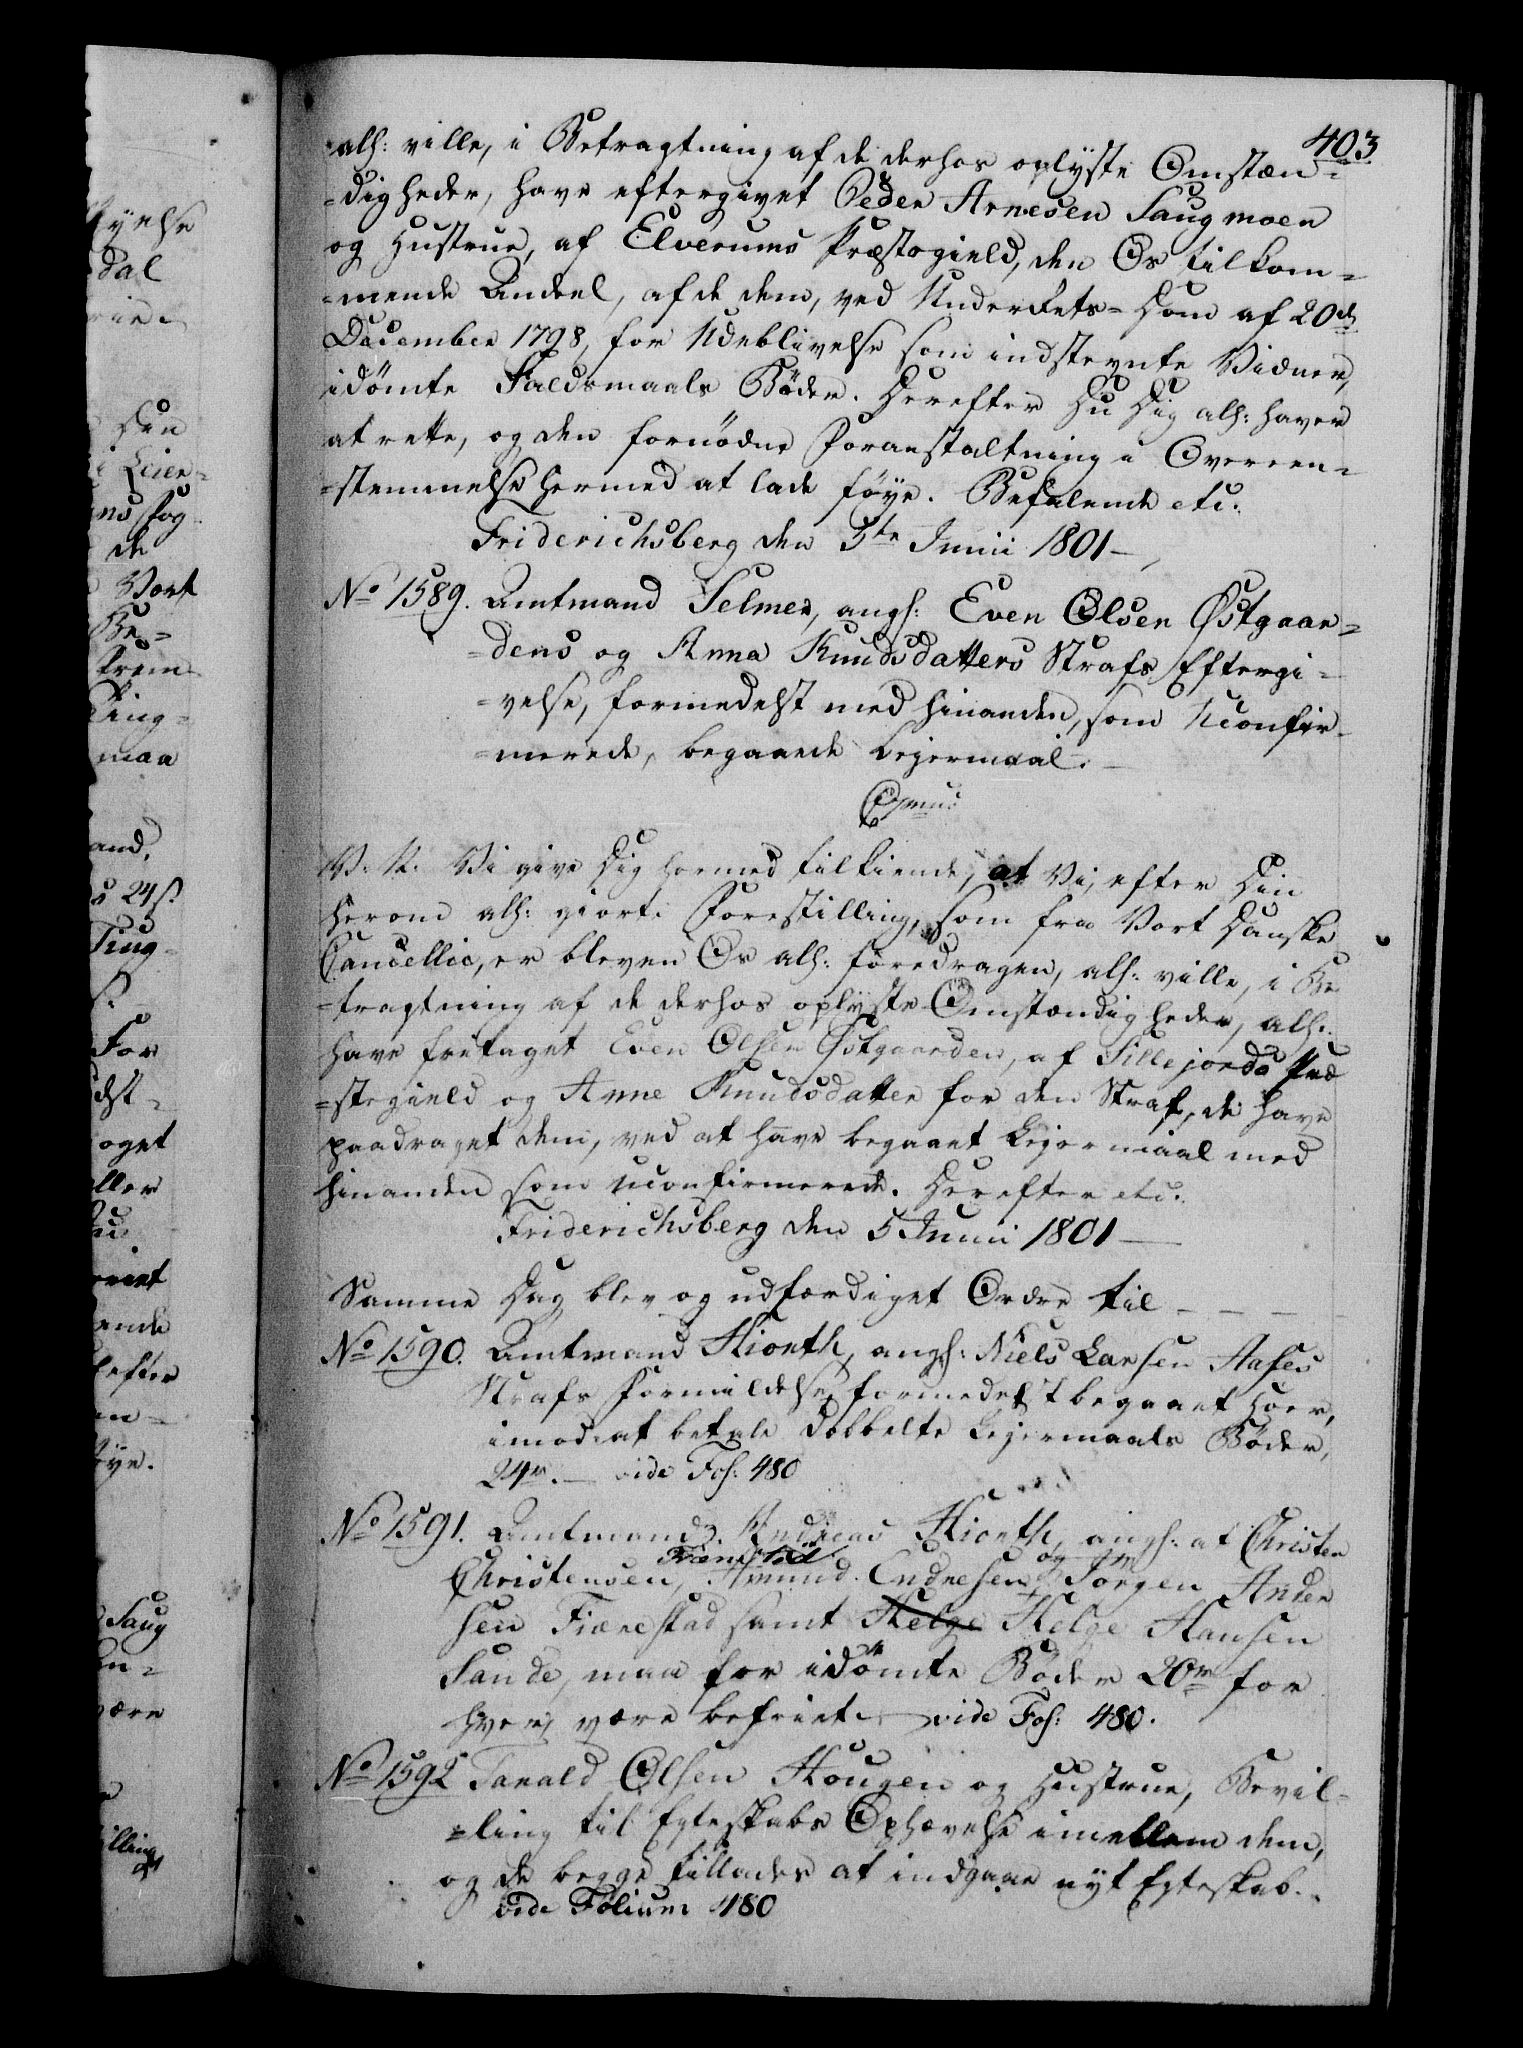 403
alh: ville, i Betragtning af de derhos oplyste Omstæn=
=digheder, have eftergivet Peder Arnesen Saugmoen
og Hustrue, af Elverums Præstegield, den Os tilkom=
=mende Andeel, af de dem, ved Underrets=Dom af 20de
December 1798, for Udeblivelse som indstevnte Vidner,
idömte Faldsmaals Böder. Derefter Du Dig alh: haver
at rette, og den fornödne Foranstaltning i Overeen=
=stemmelse hermed at lade föye. Befalende etc.
Friderichsberg den 5te Junii 1801 —
No 1589. Amtmand Selmer, angl: Even Olsen Østgaar=
=dens og Anna Knudsdatters Strafs Eftergi=
=velse, formedelst med hinanden, som Uconfir=
=merede, begaaede Lejermaal. —
V. K. Vi give Dig hermed tilkiende, at Vi, efter Din
herom alh: giorte Forestilling, som fra Vort Danske
Cancellie, er bleven Os alh: foredragen, alh: ville, i Be
=tragtning af de derhos oplyste Omstændigheder, alh:
have fritaget Even Olsen Østgaarden, af Sillejords Præ
=stegield og Anne Knudsdatter for den Straf, de have
paadraget dem, ved at have begaaet Lejermaal med
hinanden som uconfirmerede. Derefter etc.
Friderichsberg den 5 Junii 1801 —
Samme Dag blev og udfærdiget Ordre til — — —
No 1590. Amtmand Hiorth, angl: Niels Larsen Aases
Strafs Formildelse, formedelst begaaet Hoer,
imod at betale dobbelte Lejermaals Böder,
24 r. — vide Fol: 480
No 1591. Amtmand Andreas Hiorth, angl: at Christen
Fiærestad og
Christensen, Amund Endresen, Jörgen Ander
sen Fiærestad samt Helge Helge Hansen
Sande, maa for idömte Böder 20 r for
hver, være befriet. — vide Fol: 480.
No 1592 Tarald Olsen Hougen og Hustrue, Bevil=
=ling til Egteskabs Ophævelse imellem dem,
og de begge tillades at indgaae nyt Egteskab.
vide Folium 480